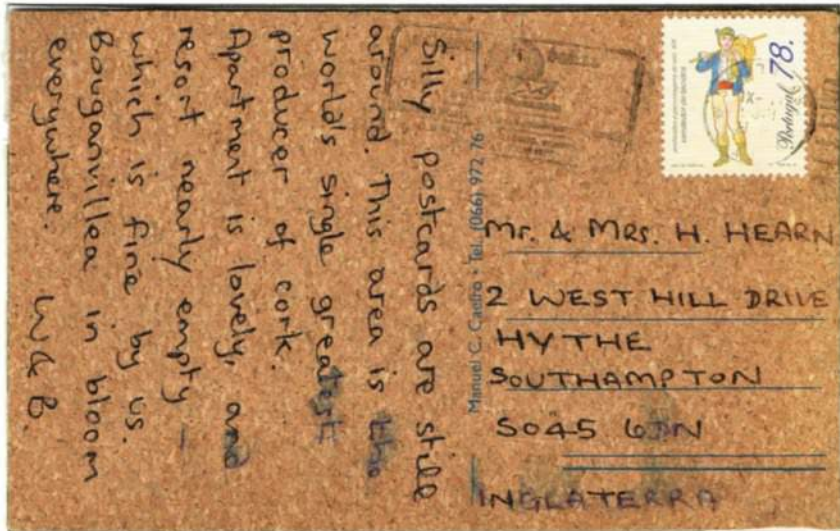 Silly postcards are still
around. This area is the
world's single greatest
producer of cork.
Apartment is lovely, and
resort nearly empty –
which is fine by us.
Bouganvillea in bloom
everywhere.
W & B.
Manuel C. Castro • Tel. (066) 972 76
78.
Portugal
Mr. & MRS. H. HEARN
2 WEST HILL DRIVE
HYTHE
SOUTHAMPTON
SO45
INGLATERRA